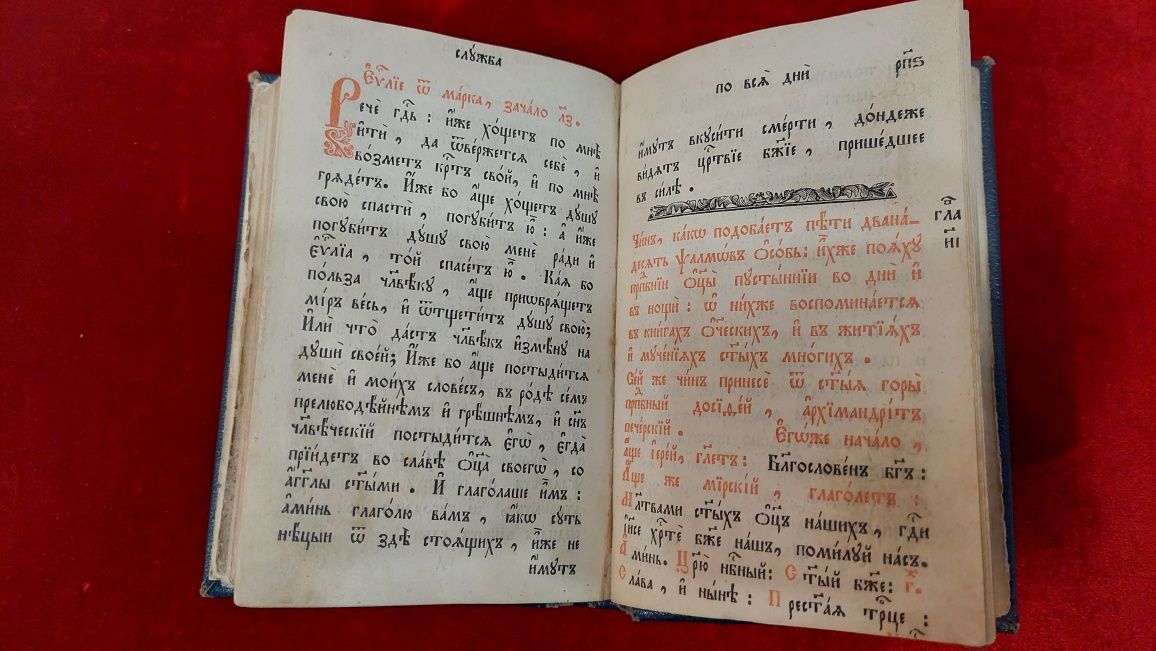 слꙋ́жба
Є҆ѵⷢ҇лїе ѿ ма́рка, зача́ло л҃з.
Речѐ гдⷭ҇ь: и҆́же хо́щетъ по мнѣ̀
и҆тѝ, да ѿве́ржется себѐ, и҆
во́зметъ крⷭ҇тъ сво́й, и҆ по мнѣ̀
гряде́тъ. И҆́же бо а҆́ще хо́щетъ дꙋ́шꙋ
свою̀ спастѝ, погꙋби́тъ ю҆̀: а҆ и҆́же
погꙋби́тъ дꙋ́шꙋ свою̀ менѐ ра́ди и҆
є҆ѵⷢ҇лїа, то́й спасе́тъ ю҆̀. Ка́я бо
по́льза чл҃вѣ́кꙋ, а҆́ще приѡбря́щетъ
мі́ръ ве́сь, и҆ ѿтщети́тъ дꙋ́шꙋ свою̀;
И҆лѝ что̀ да́стъ чл҃вѣ́къ и҆змѣ́нꙋ на
дꙋшѝ свое́й; И҆́же бо а҆́ще постыди́тся
менѐ и҆ мои́хъ слове́съ, въ ро́дѣ се́мъ
прелюбодѣ́йнѣмъ и҆ грѣ́шнѣмъ, и҆ сн҃ъ
чл҃вѣ́ческїй постыди́тся є҆гѡ̀, є҆гда̀
прїи́детъ во сла́вѣ ѻ҆ц҃а̀ своегѡ̀, со
а҆́гг҃лы ст҃ы́ми. И҆ глаго́лаше и҆̀мъ:
а҆ми́нь глаго́лю ва́мъ, ꙗ҆́кѡ сꙋ́ть
нѣ́цыи ѿ здѣ̀ стоя́щихъ, и҆̀же не
и҆́мꙋтъ
по вся̀ днѝ
рп҃ѕ
и҆́мꙋтъ вкꙋси́ти сме́рти, до́ндеже
ви́дятъ црⷭ҇твїе бж҃їе, прише́дшее
въ си́лѣ.
Чи́нъ, ка́кѡ подоба́етъ пѣ́ти двана́-
десять ѱалмѡ́въ ѻ҆со́бь: и҆̀хже поя́хꙋ
прпⷣбнїи ѻ҆ц҃ы̀ пꙋсты́ннїи во днѝ и҆
въ нощѝ: ѡ҆ ни́хже воспомина́ется
въ кни́гахъ ѻ҆те́ческихъ, и҆ въ житїя́хъ
и҆ мꙋче́нїяхъ ст҃ы́хъ мно́гихъ.
гла
и҃і
Се́й же чи́нъ принесѐ ѿ ст҃ы́я горы̀
прпⷣбный досїѳе́й, а҆рхїмандри́тъ
пече́рскїй. Є҆гѡ́же нача́ло,
а҆́ще і҆ере́й, гл҃етъ: Блⷭ҇гослове́нъ бг҃ъ:
А҆́ще же мїрскі́й, глаго́летъ:
Мл҃твами ст҃ы́хъ ѻ҆ц҃ъ на́шихъ, гдⷭ҇и
і҆сⷭ҇е хрⷭ҇тѐ бж҃е на́шъ, поми́лꙋй на́съ.
А҆ми́нь. Цр҃ю̀ нбⷭ҇ный: Ст҃ы́й бж҃е: г҃.
Сла́ва, и҆ ны́нѣ: Прест҃а́я трⷪ҇це: